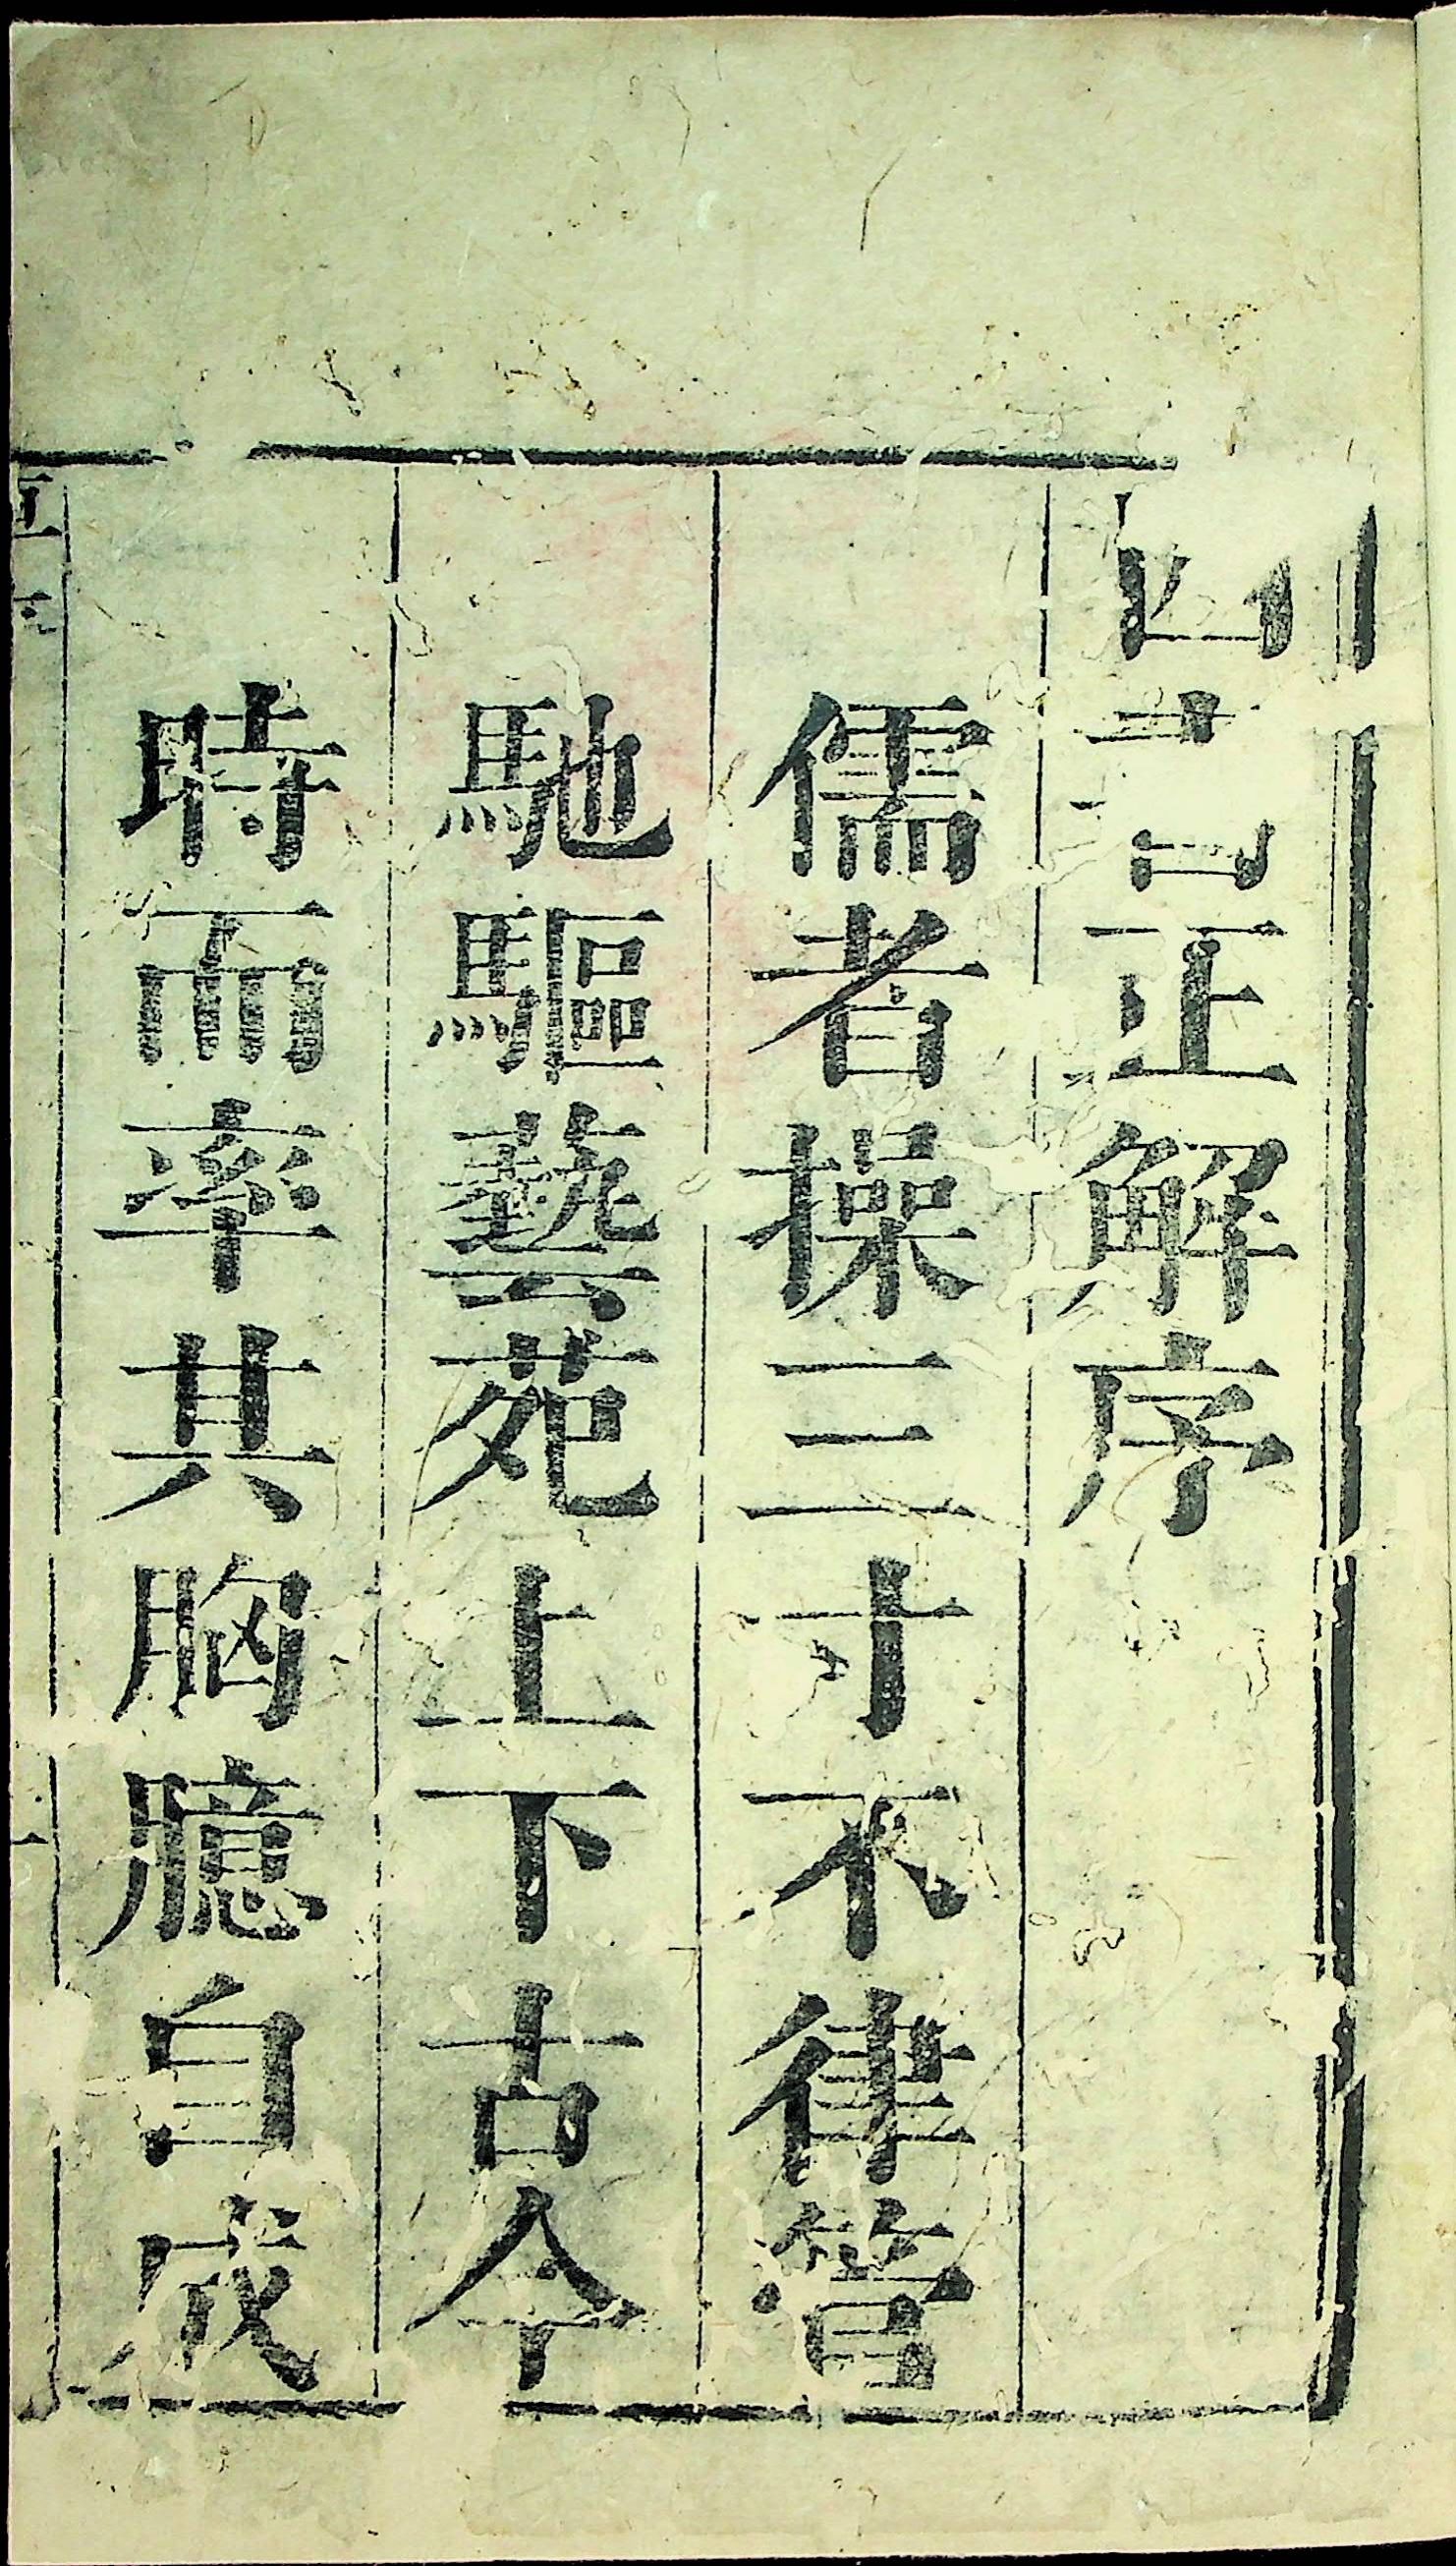 四書正解序
儒者操三寸不律管
馳驅藝苑上下古今
時而率其胸臆自成